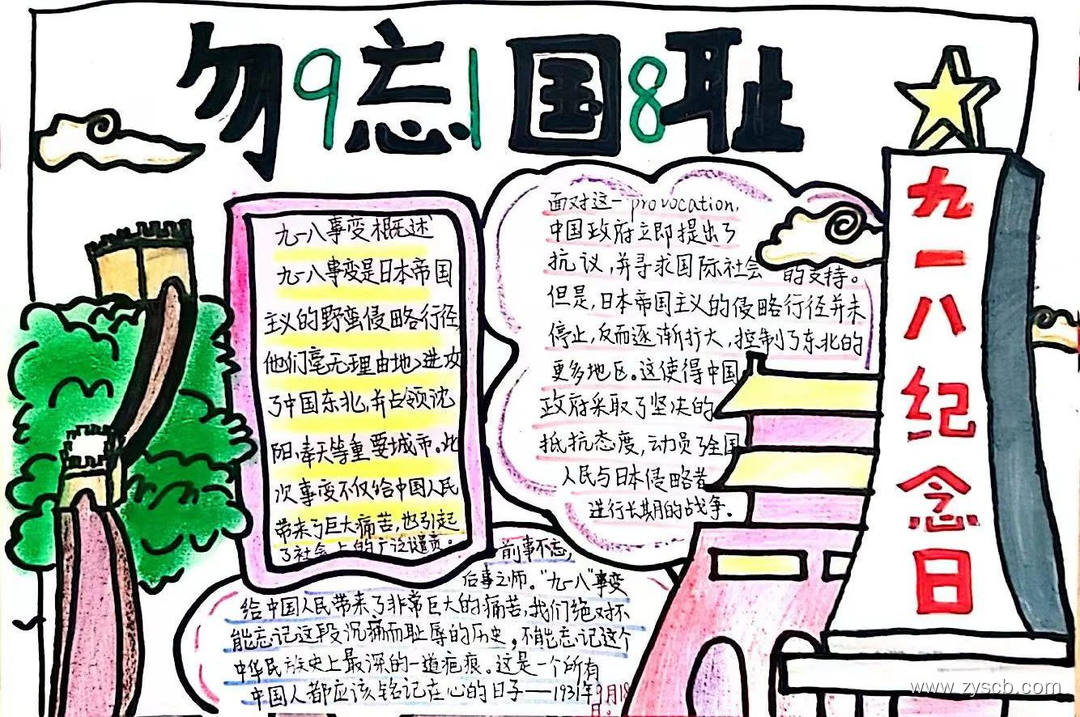 勿9忘1国8耻
九一八纪念日
九一八事变概述
九一八事变是日本帝国
主义的野蛮侵略行径,
他们毫无理由地进攻
了中国东北,并占领沈
阳、奉天等重要城市。此
次事变不仅给中国人民
带来了巨大痛苦,也引起
了社会上的广泛谴责。
面对这一provocation,
中国政府立即提出了
抗议,并寻求国际社会的支持。
但是,日本帝国主义的侵略行径并未
停止,反而逐渐扩大,控制了东北的
更多地区。这使得中国
政府采取了坚决的
抵抗态度,动员了全国
人民与日本侵略者
进行长期的战争。
前事不忘,
后事之师。"九一八"事变
给中国人民带来了非常巨大的痛苦,我们绝对不
能忘记这段沉痛而耻辱的历史,不能忘记这个
中华民族史上最深的一道疤痕。这是一个所有
中国人都应该铭记在心的日子——1931年9月18
日。
www.zyscb.com